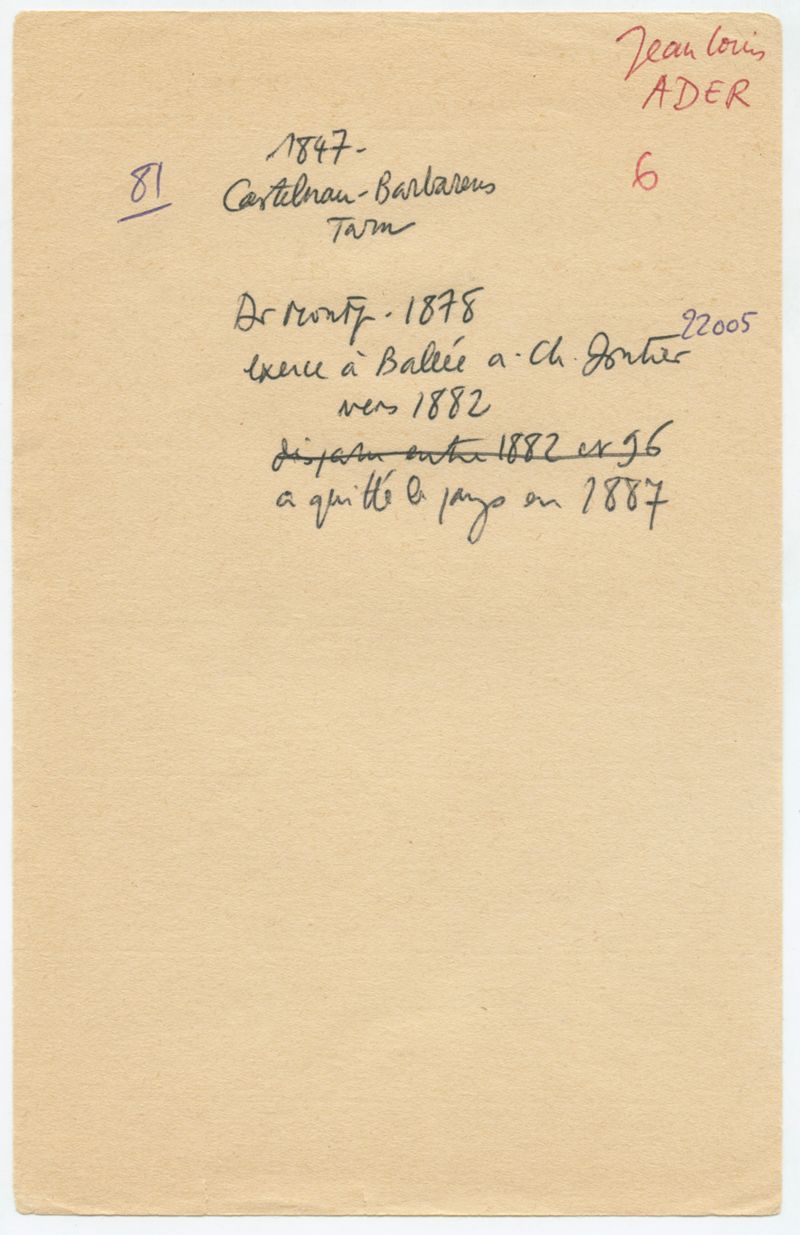 Jean Louis
ADER
6
1847-
81
Castelnau-Barbarens
Tarn
Dr Montp. 1878
22005
exerce à Ballée a. Ch.
vers 1882
disparu entre 1882 et 96
a quitté le pays en 1887